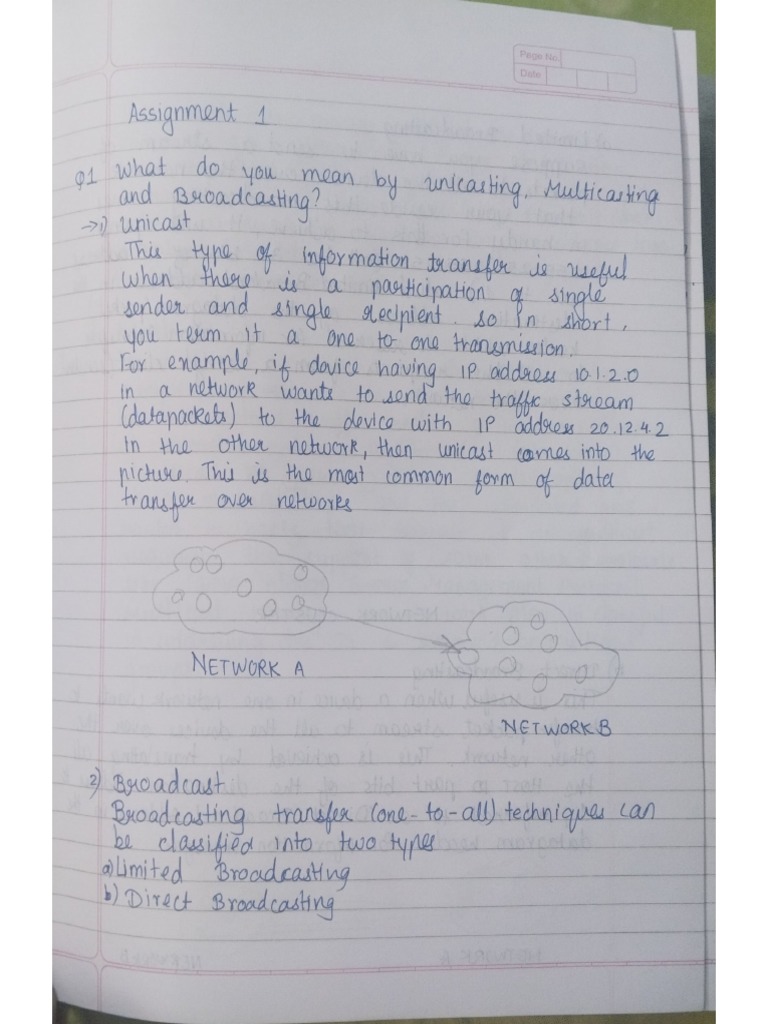 Page No.
Date
Assignment 1
Q1 What do you mean by unicasting, Multicasting
and Broadcasting?
→1) unicast
This type of information transfer is useful
when there is a participation of single
sender and single recipient. so in short,
you term it a one to one transmission.
For example, if device having IP address 10.1.2.0
in a network wants to send the traffic stream
(datapackets) to the device with IP address 20.12.4.2
in the other network, then unicast comes into the
picture. This is the most common form of data
transfer over networks
NETWORK A
NETWORK B
2) Broadcast
Broadcasting transfer (one-to-all) techniques can
be classified into two types
a) Limited Broadcasting
b) Direct Broadcasting